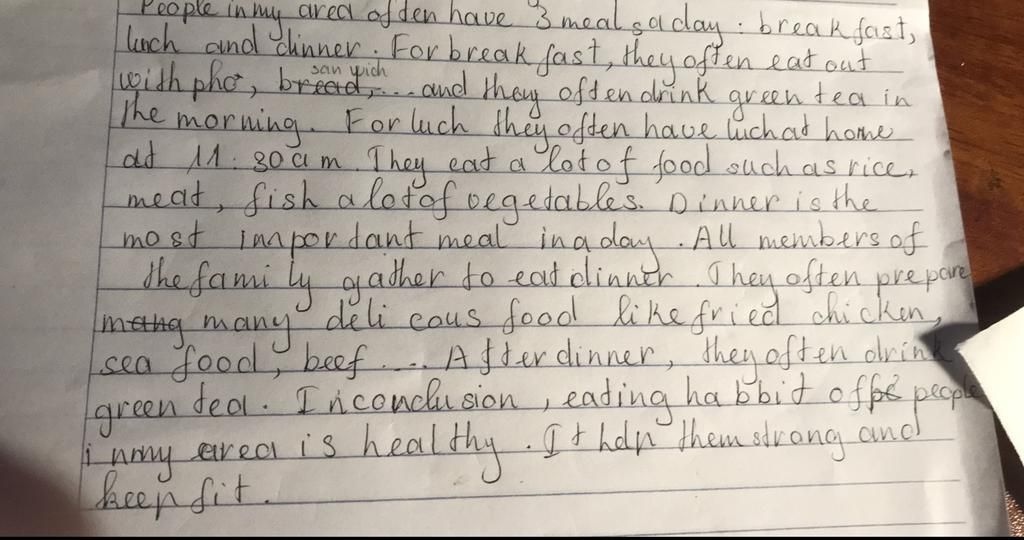 People in my area often have 3 meals a day : breakfast,
luch and dinner. For breakfast, they often eat out
with pho, bread, sanwich ... and they often drink green tea in
the morning. For luch they often have luch at home
at 11:30 am. They eat a lot of food such as rice,
meat, fish a lot of vegetables. Dinner is the
most important meal in a day. All members of
the family gather to eat dinner. They often prepare
mang many delicous food like fried chicken,
sea food, beef .... After dinner, they often drink
green tea. In conclusion, eating habbit of people
in my area is healthy. It help them strong and
keep fit.